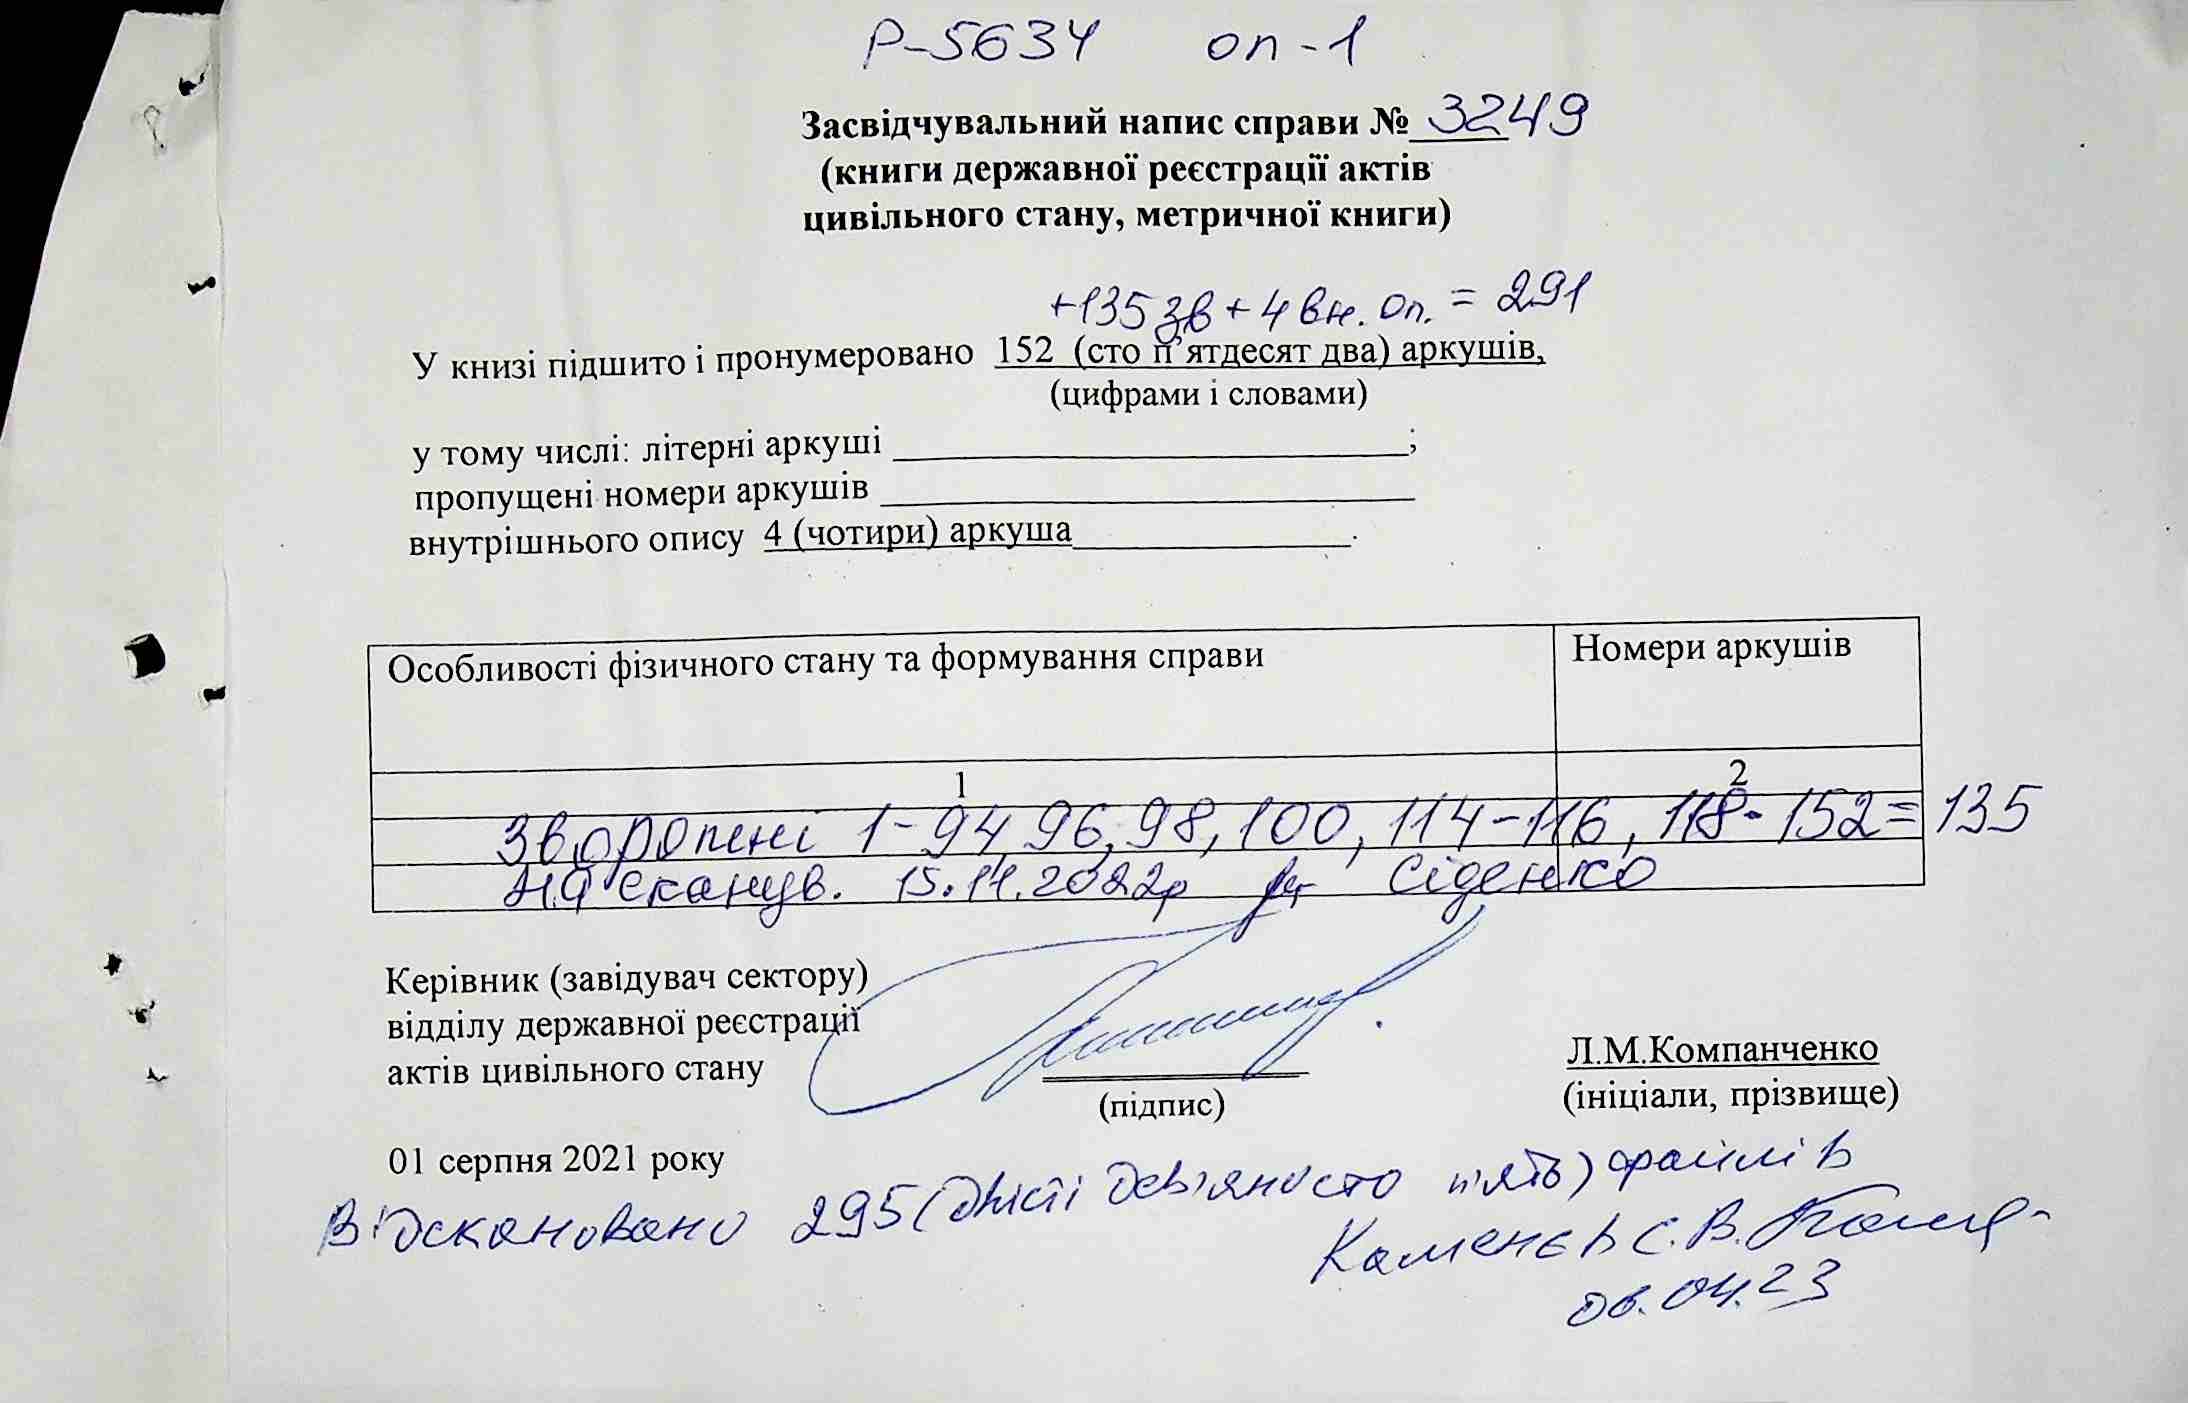 Р-5634 оп-1
Засвідчувальний напис справи № 3249
(книги державної реєстрації актів
цивільного стану, метричної книги)
+135 зв + 4 вн. оп. = 291
У книзі підшито і пронумеровано 152 (сто п’ятдесят два) аркушів,
(цифрами і словами)
у тому числі: літерні аркуші ;
пропущені номери аркушів
внутрішнього опису 4 (чотири) аркуша .
Особливості фізичного стану та формування справи Номери аркушів
1 2
Зворотні 1-94, 96, 98, 100, 114-116, 118-152 = 135
на сканув. 15.11.2022р Сіденко
Керівник (завідувач сектору)
відділу державної реєстрації
актів цивільного стану
Л.М.Компанченко
(підпис) (ініціали, прізвище)
01 серпня 2021 року
Відскановано 295 (двісті дев'яносто п'ять) файлів
Каменєв С.В.
06.04.23